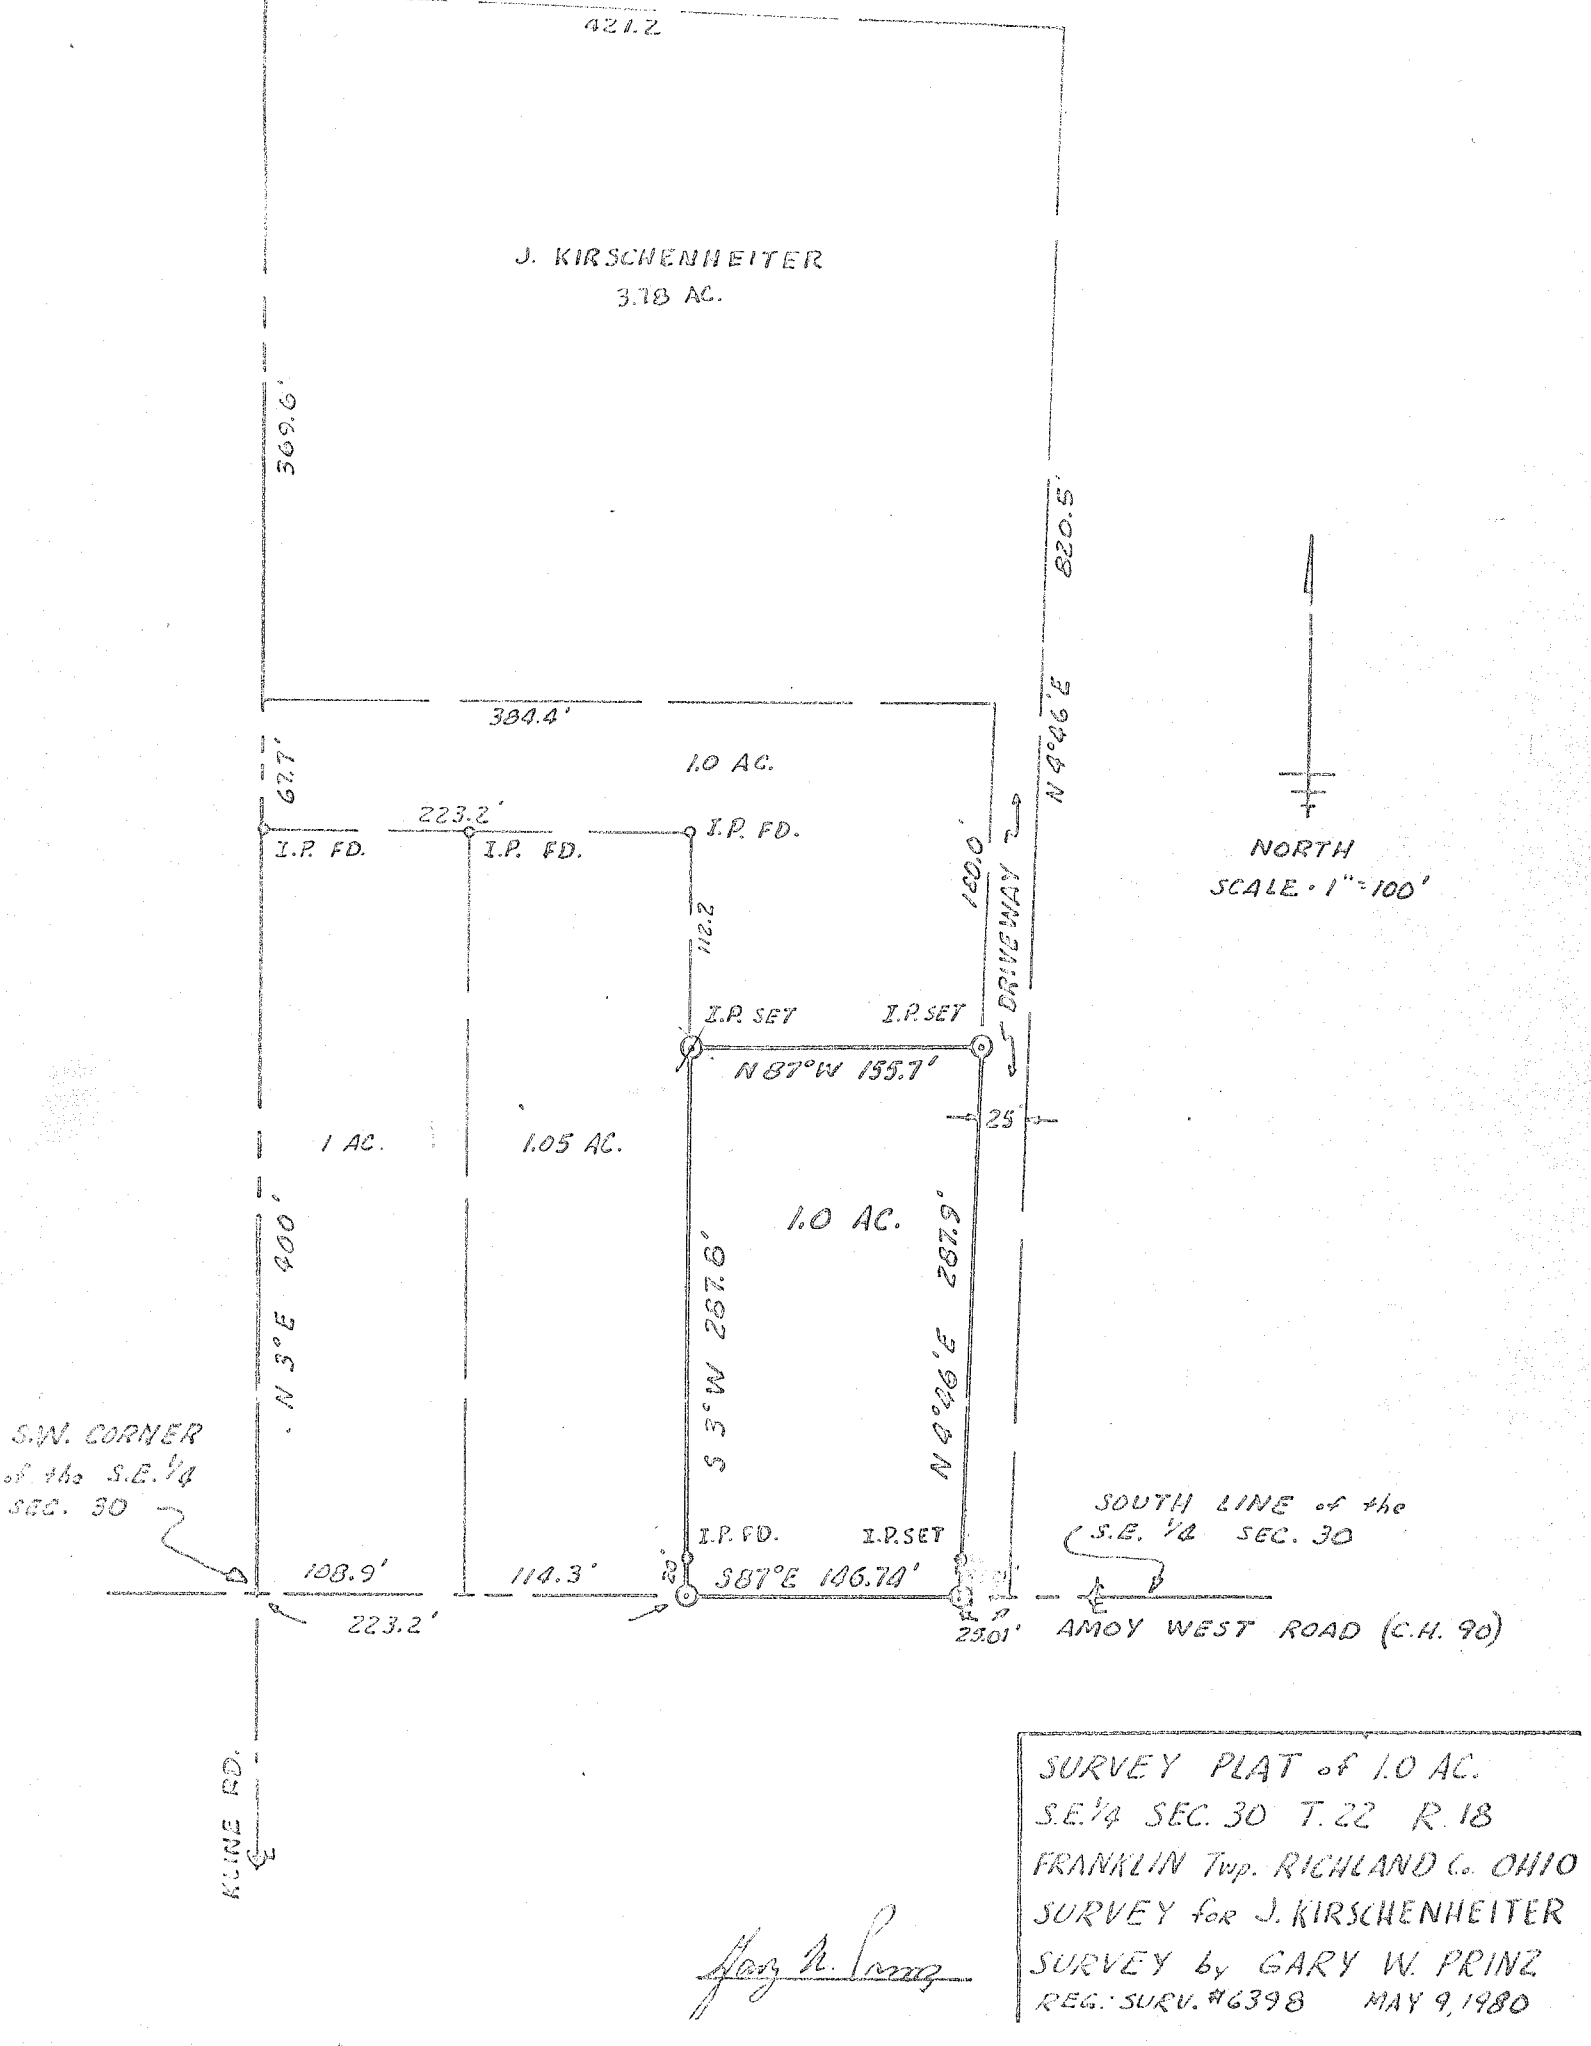 421.2
J. KIRSCHENHEITER
3.78 AC.
369.6'
820.5'
N 4°46'E
384.4'
67.7'
1.0 AC.
223.2'
I.P. FD.
I.P. FD.
I.P. FD.
112.2
180.0'
DRIVEWAY
NORTH
SCALE · 1"=100'
I.P. SET
I.P. SET
N 87°W 155.7'
25'
1 AC.
1.05 AC.
1.0 AC.
N 3°E 400'
S 3°W 287.8'
N 4°46'E 287.9'
S.W. CORNER
of the S.E. 1/4
SEC. 30
SOUTH LINE of the
S.E. 1/4 SEC. 30
I.P. FD.
I.P. SET
20'
108.9'
114.3'
S87°E 146.74'
223.2'
25.01'
AMOY WEST ROAD (C.H. 90)
KLINE RD.
SURVEY PLAT of 1.0 AC.
S.E. 1/4 SEC. 30 T. 22 R. 18
FRANKLIN Twp. RICHLAND Co. OHIO
SURVEY for J. KIRSCHENHEITER
SURVEY by GARY W. PRINZ
REG. SURV. #6398 MAY 9, 1980
Gary W. Prinz